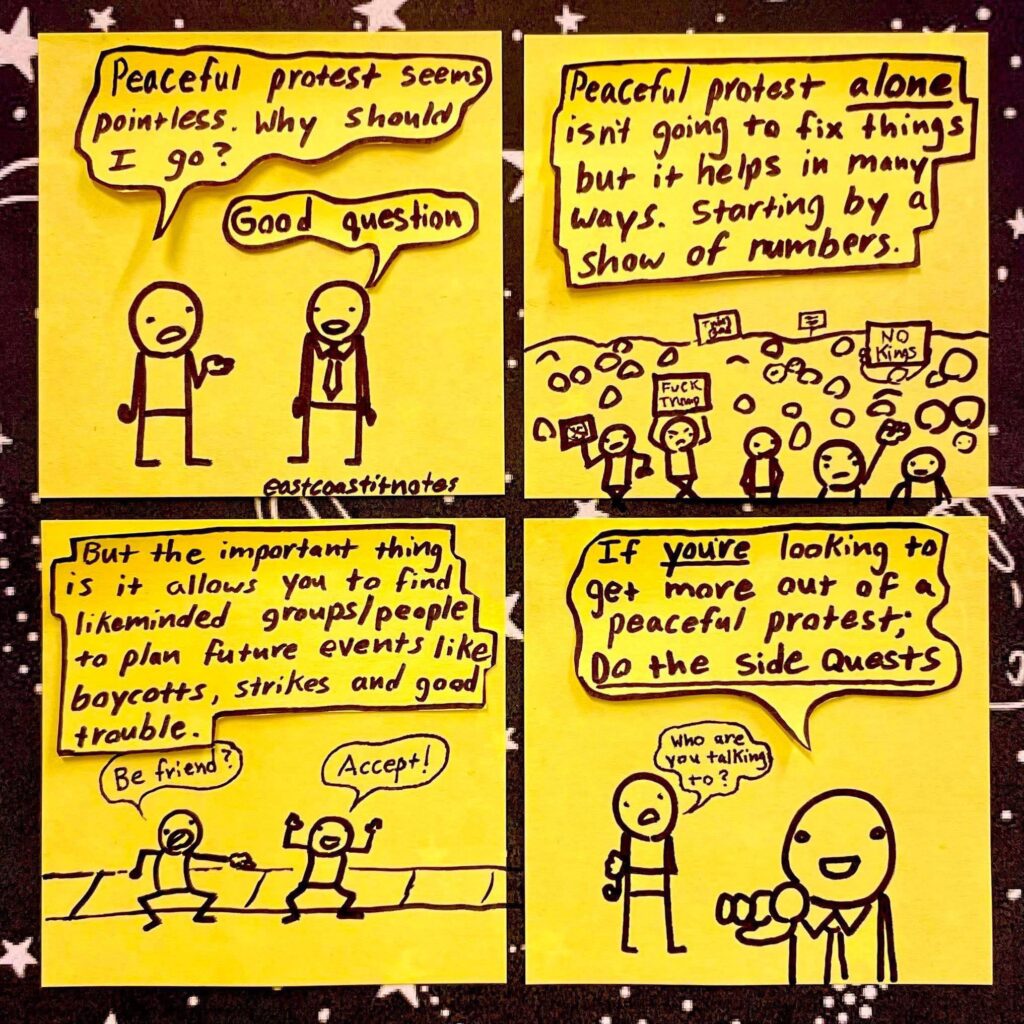 Peaceful protest seems
pointless. Why should
I go?
Good question
eastcoastitnotes
Peaceful protest alone
isn't going to fix things
but it helps in many
ways. Starting by a
show of numbers.
NO
Kings
FUCK
Trump
But the important thing
is it allows you to find
likeminded groups/people
to plan future events like
boycotts, strikes and good
trouble.
Be friend?
Accept!
If you're looking to
get more out of a
peaceful protest;
Do the side Quests
Who are
you talking
to?